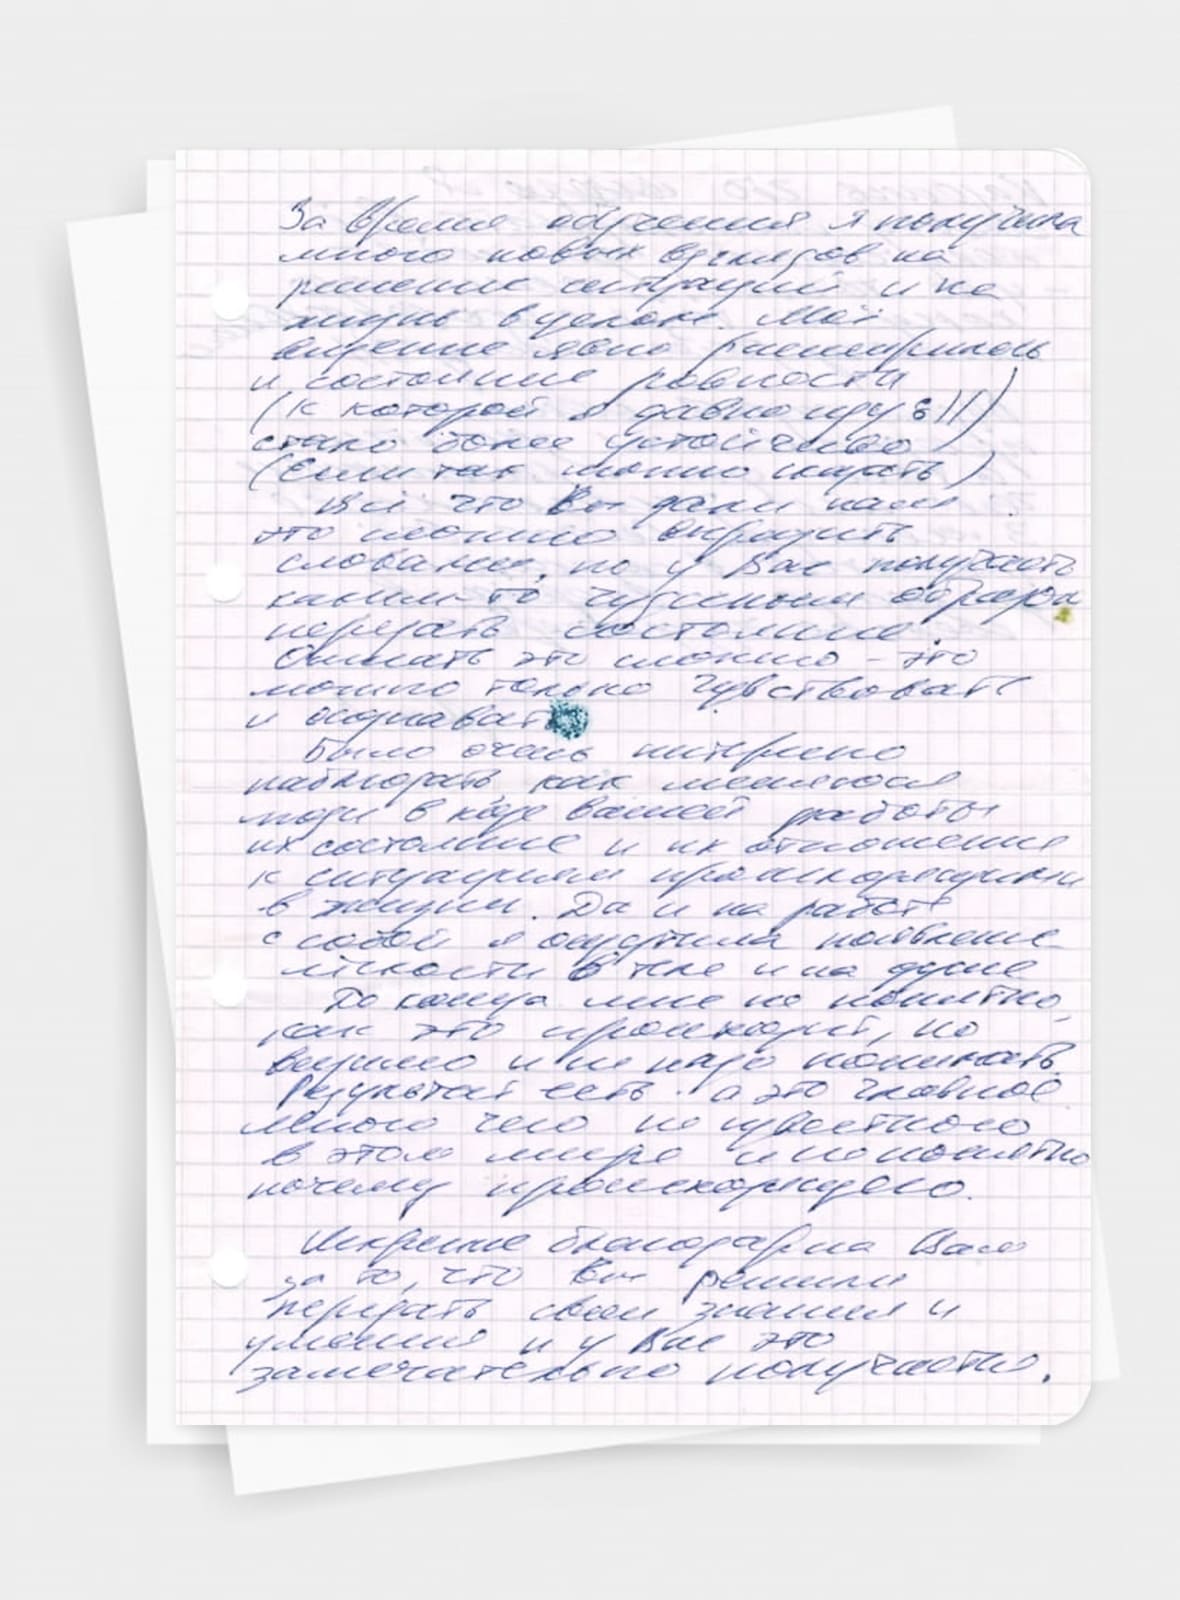 За время обучения я получила
много новых взглядов на
решение ситуаций и на
жизнь в целом. Моё
видение явно расширилось
и состояние ровности
(к которой я давно иду в!!)
стало более устойчиво
(Если так можно сказать)
Всё что Вы дали нам
это можно выразить
словами, но у Вас получается
каким-то чудесным образом
передать состояние.
Описать это сложно - это
можно только чувствовать
и осознавать
Было очень интересно
наблюдать как меняются
люди в ходе вашей работы
их состояние и их отношение
к ситуациям происходящими
в жизни. Да и на работе
с собой я ощутила появление
лёгкости в теле и на душе
До конца мне не понятно,
как это происходит, но
видимо и не надо понимать
Результат есть. а это главное
Много чего не известного
в этом мире и не понятно
почему происходящего.
Искренне благодарна Вам
за то, что Вы решили
передать свои знания и
умения и у Вас это
замечательно получается.